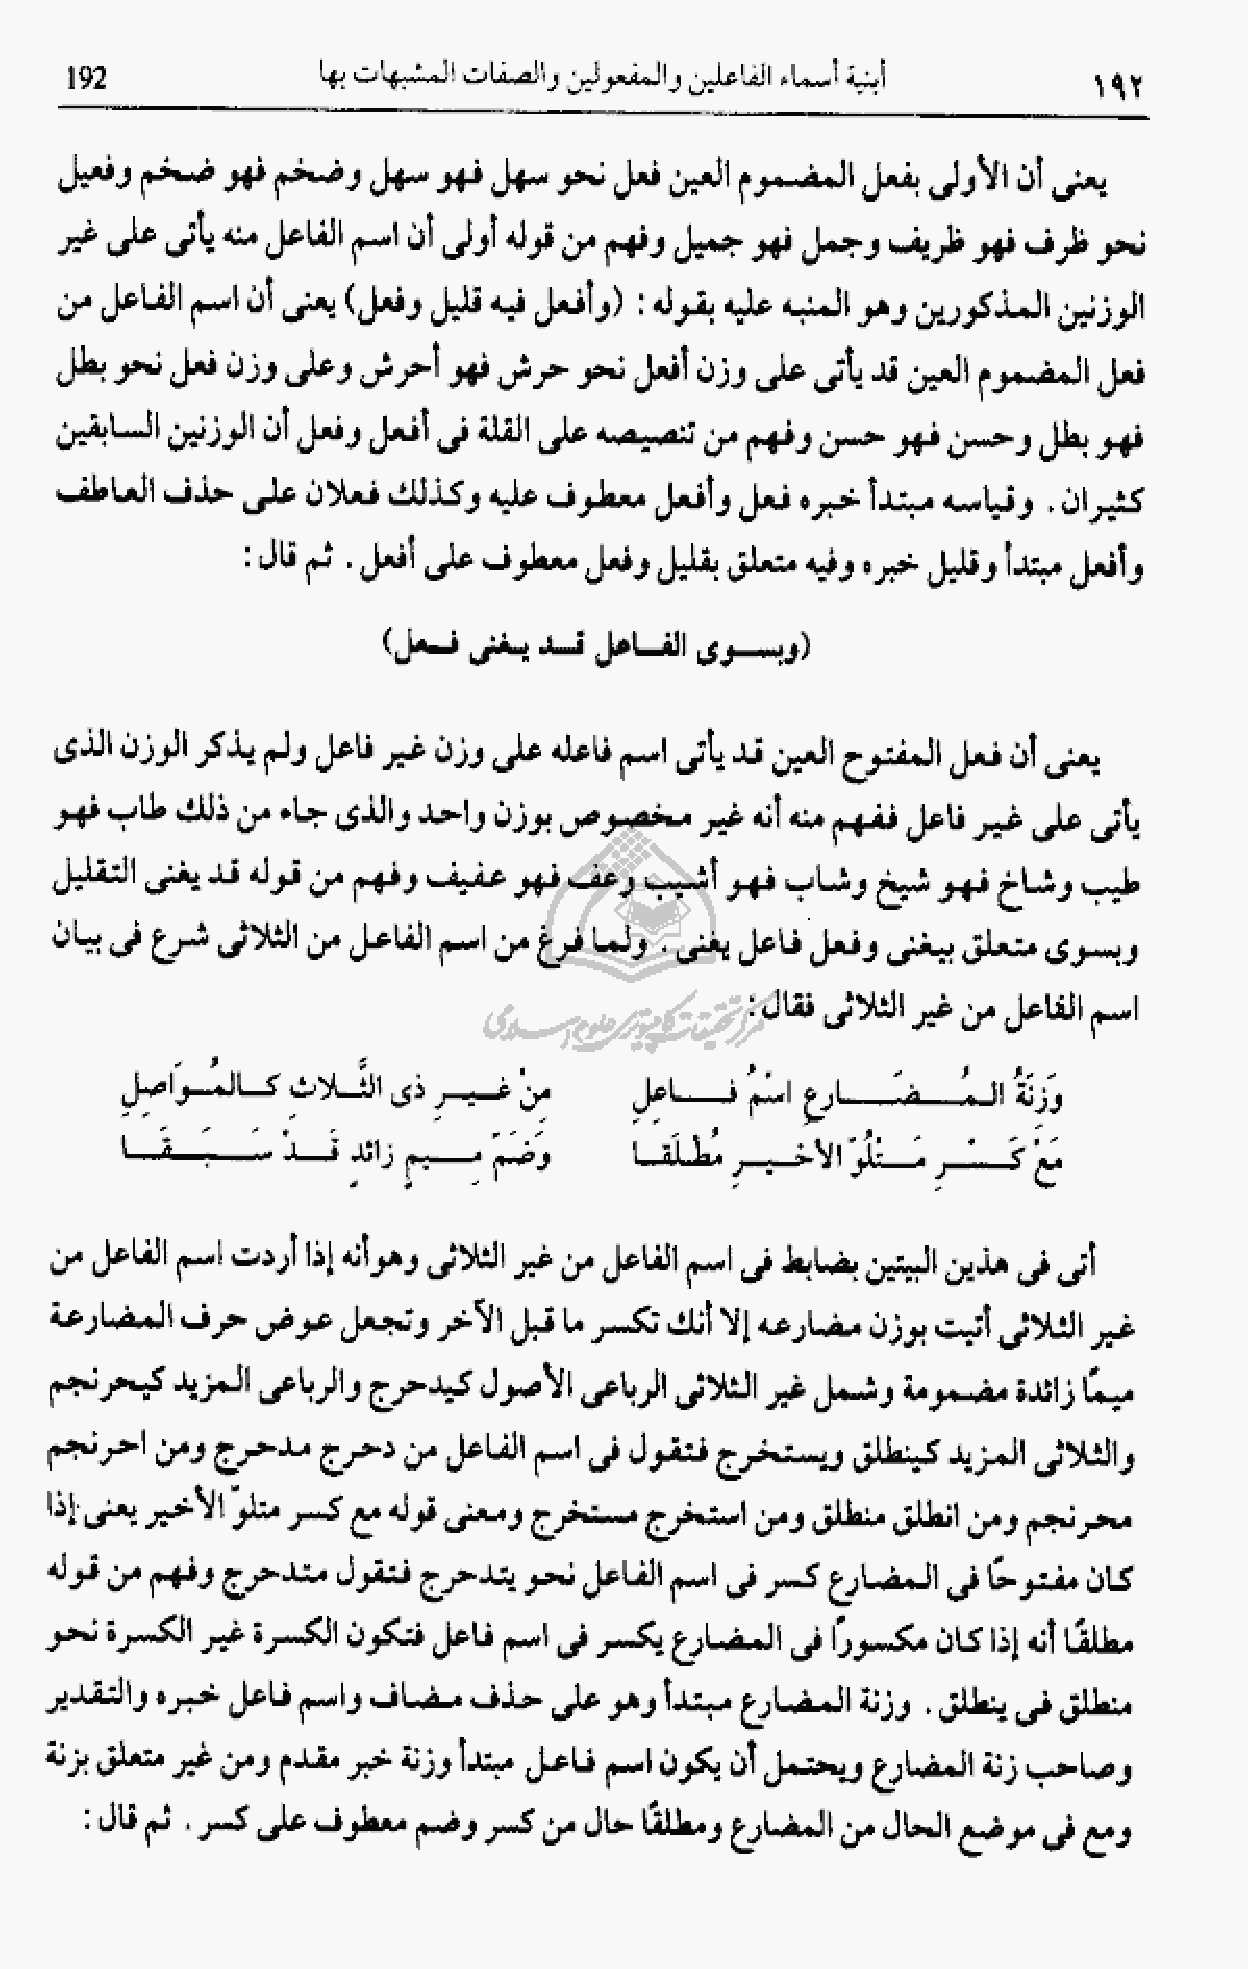 ١٩٢ أبنية أسماء الفاعلين والمفعولين والصفات المشبهات بها 192
يعنى أن الأولى بفعل المضموم العين فعل نحو سهل فهو سهل وضخم فهو ضخم وفعيل
نحو ظرف فهو ظريف وجمل فهو جميل وفهم من قوله أولى أن اسم الفاعل منه يأتى على غير
الوزنين المذكورين وهو المنبه عليه بقوله : (وأفعل فيه قليل وفعل) يعنى أن اسم الفاعل من
فعل المضموم العين قد يأتى على وزن أفعل نحو حرش فهو أحرش وعلى وزن فعل نحو بطل
فهو بطل وحسن فهو حسن وفهم من تنصيصه على القلة فى أفعل وفعل أن الوزنين السابقين
كثيران . وقياسه مبتدأ خبره فعل وأفعل معطوف عليه وكذلك فعلان على حذف العاطف
وأفعل مبتدأ وقليل خبره وفيه متعلق بقليل وفعل معطوف على أفعل . ثم قال :
(وبسوى الفاعل قد يغنى فعل)
يعنى أن فعل المفتوح العين قد يأتى اسم فاعله على وزن غير فاعل ولم يذكر الوزن الذى
يأتى على غير فاعل ففهم منه أنه غير مخصوص بوزن واحد والذى جاء من ذلك طاب فهو
طيب وشاخ فهو شيخ وشاب فهو أشيب وعف فهو عفيف وفهم من قوله قد يغنى التقليل
وبسوى متعلق بيغنى وفعل فاعل يغنى . ولما فرغ من اسم الفاعل من الثلاثى شرع فى بيان
اسم الفاعل من غير الثلاثى فقال :
مركز تحقيقات كامپيوترى علوم اسلامى
وَزِنَةُ الْمُضَارِعِ اسْمُ فَاعِلِ مِنْ غَيرِ ذِى الثَّلاثِ كَالمُوَاصِلِ
مَعْ كَسْرِ مَتْلُوِّ الأخيرِ مُطْلَقَا وَضَمِّ مِيمٍ زائدٍ قَدْ سَبَقَا
أتى فى هذين البيتين بضابط فى اسم الفاعل من غير الثلاثى وهوأنه إذا أردت اسم الفاعل من
غير الثلاثى أتيت بوزن مضارعه إلا أنك تكسر ما قبل الآخر وتجعل عوض حرف المضارعة
ميمًا زائدة مضمومة وشمل غير الثلاثى الرباعى الأصول كيدحرج والرباعى المزيد كيحرنجم
والثلاثى المزيد كينطلق ويستخرج فتقول فى اسم الفاعل من دحرج مدحرج ومن احرنجم
محرنجم ومن انطلق منطلق ومن استخرج مستخرج ومعنى قوله مع كسر متلوّ الأخير يعنى إذا
كان مفتوحًا فى المضارع كسر فى اسم الفاعل نحو يتدحرج فتقول متدحرج وفهم من قوله
مطلقًا أنه إذا كان مكسورًا فى المضارع يكسر فى اسم فاعل فتكون الكسرة غير الكسرة نحو
منطلق فى ينطلق . وزنة المضارع مبتدأ وهو على حذف مضاف واسم فاعل خبره والتقدير
وصاحب زنة المضارع ويحتمل أن يكون اسم فاعل مبتدأ وزنة خبر مقدم ومن غير متعلق بزنة
ومع فى موضع الحال من المضارع ومطلقًا حال من كسر وضم معطوف على كسر . ثم قال :